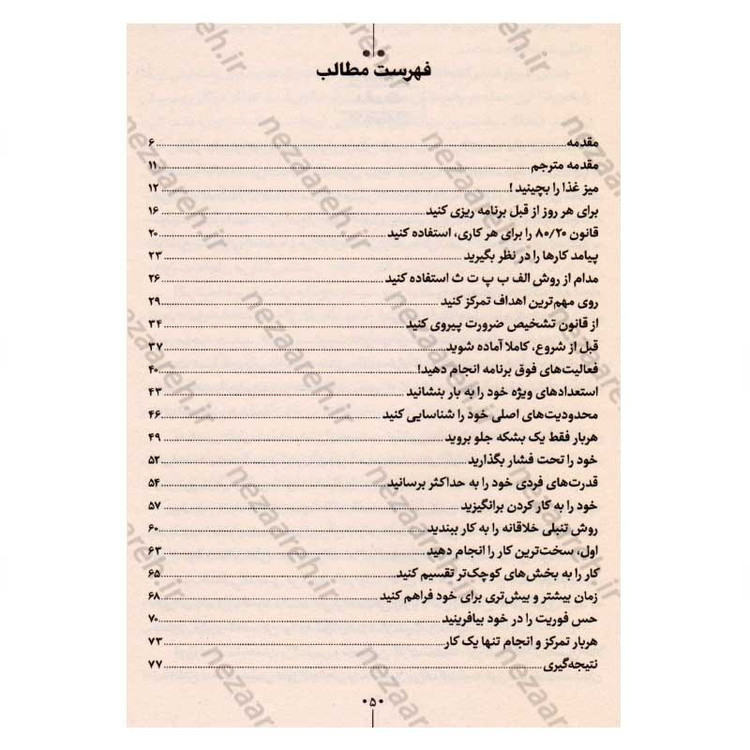 فهرست مطالب
مقدمه ........ ۶
مقدمه مترجم ........ ۱۱
میز غذا را بچینید! ........ ۱۲
برای هر روز از قبل برنامه ریزی کنید ........ ۱۶
قانون ۸۰/۲۰ را برای هر کاری، استفاده کنید ........ ۲۰
پیامد کارها را در نظر بگیرید ........ ۲۳
مدام از روش الف ب پ ت ث استفاده کنید ........ ۲۶
روی مهم‌ترین اهداف تمرکز کنید ........ ۲۹
از قانون تشخیص ضرورت پیروی کنید ........ ۳۴
قبل از شروع، کاملا آماده شوید ........ ۳۷
فعالیت‌های فوق برنامه انجام دهید! ........ ۴۰
استعدادهای ویژه خود را به بار بنشانید ........ ۴۳
محدودیت‌های اصلی خود را شناسایی کنید ........ ۴۶
هربار فقط یک بشکه جلو بروید ........ ۴۹
خود را تحت فشار بگذارید ........ ۵۲
قدرت‌های فردی خود را به حداکثر برسانید ........ ۵۴
خود را به کار کردن برانگیزید ........ ۵۷
روش تنبلی خلاقانه را به کار ببندید ........ ۶۰
اول، سخت‌ترین کار را انجام دهید ........ ۶۳
کار را به بخش‌های کوچک‌تر تقسیم کنید ........ ۶۵
زمان بیشتر و بیش‌تری برای خود فراهم کنید ........ ۶۸
حس فوریت را در خود بیافرینید ........ ۷۰
هربار تمرکز و انجام تنها یک کار ........ ۷۳
نتیجه‌گیری ........ ۷۷
۵
nezaareh.ir